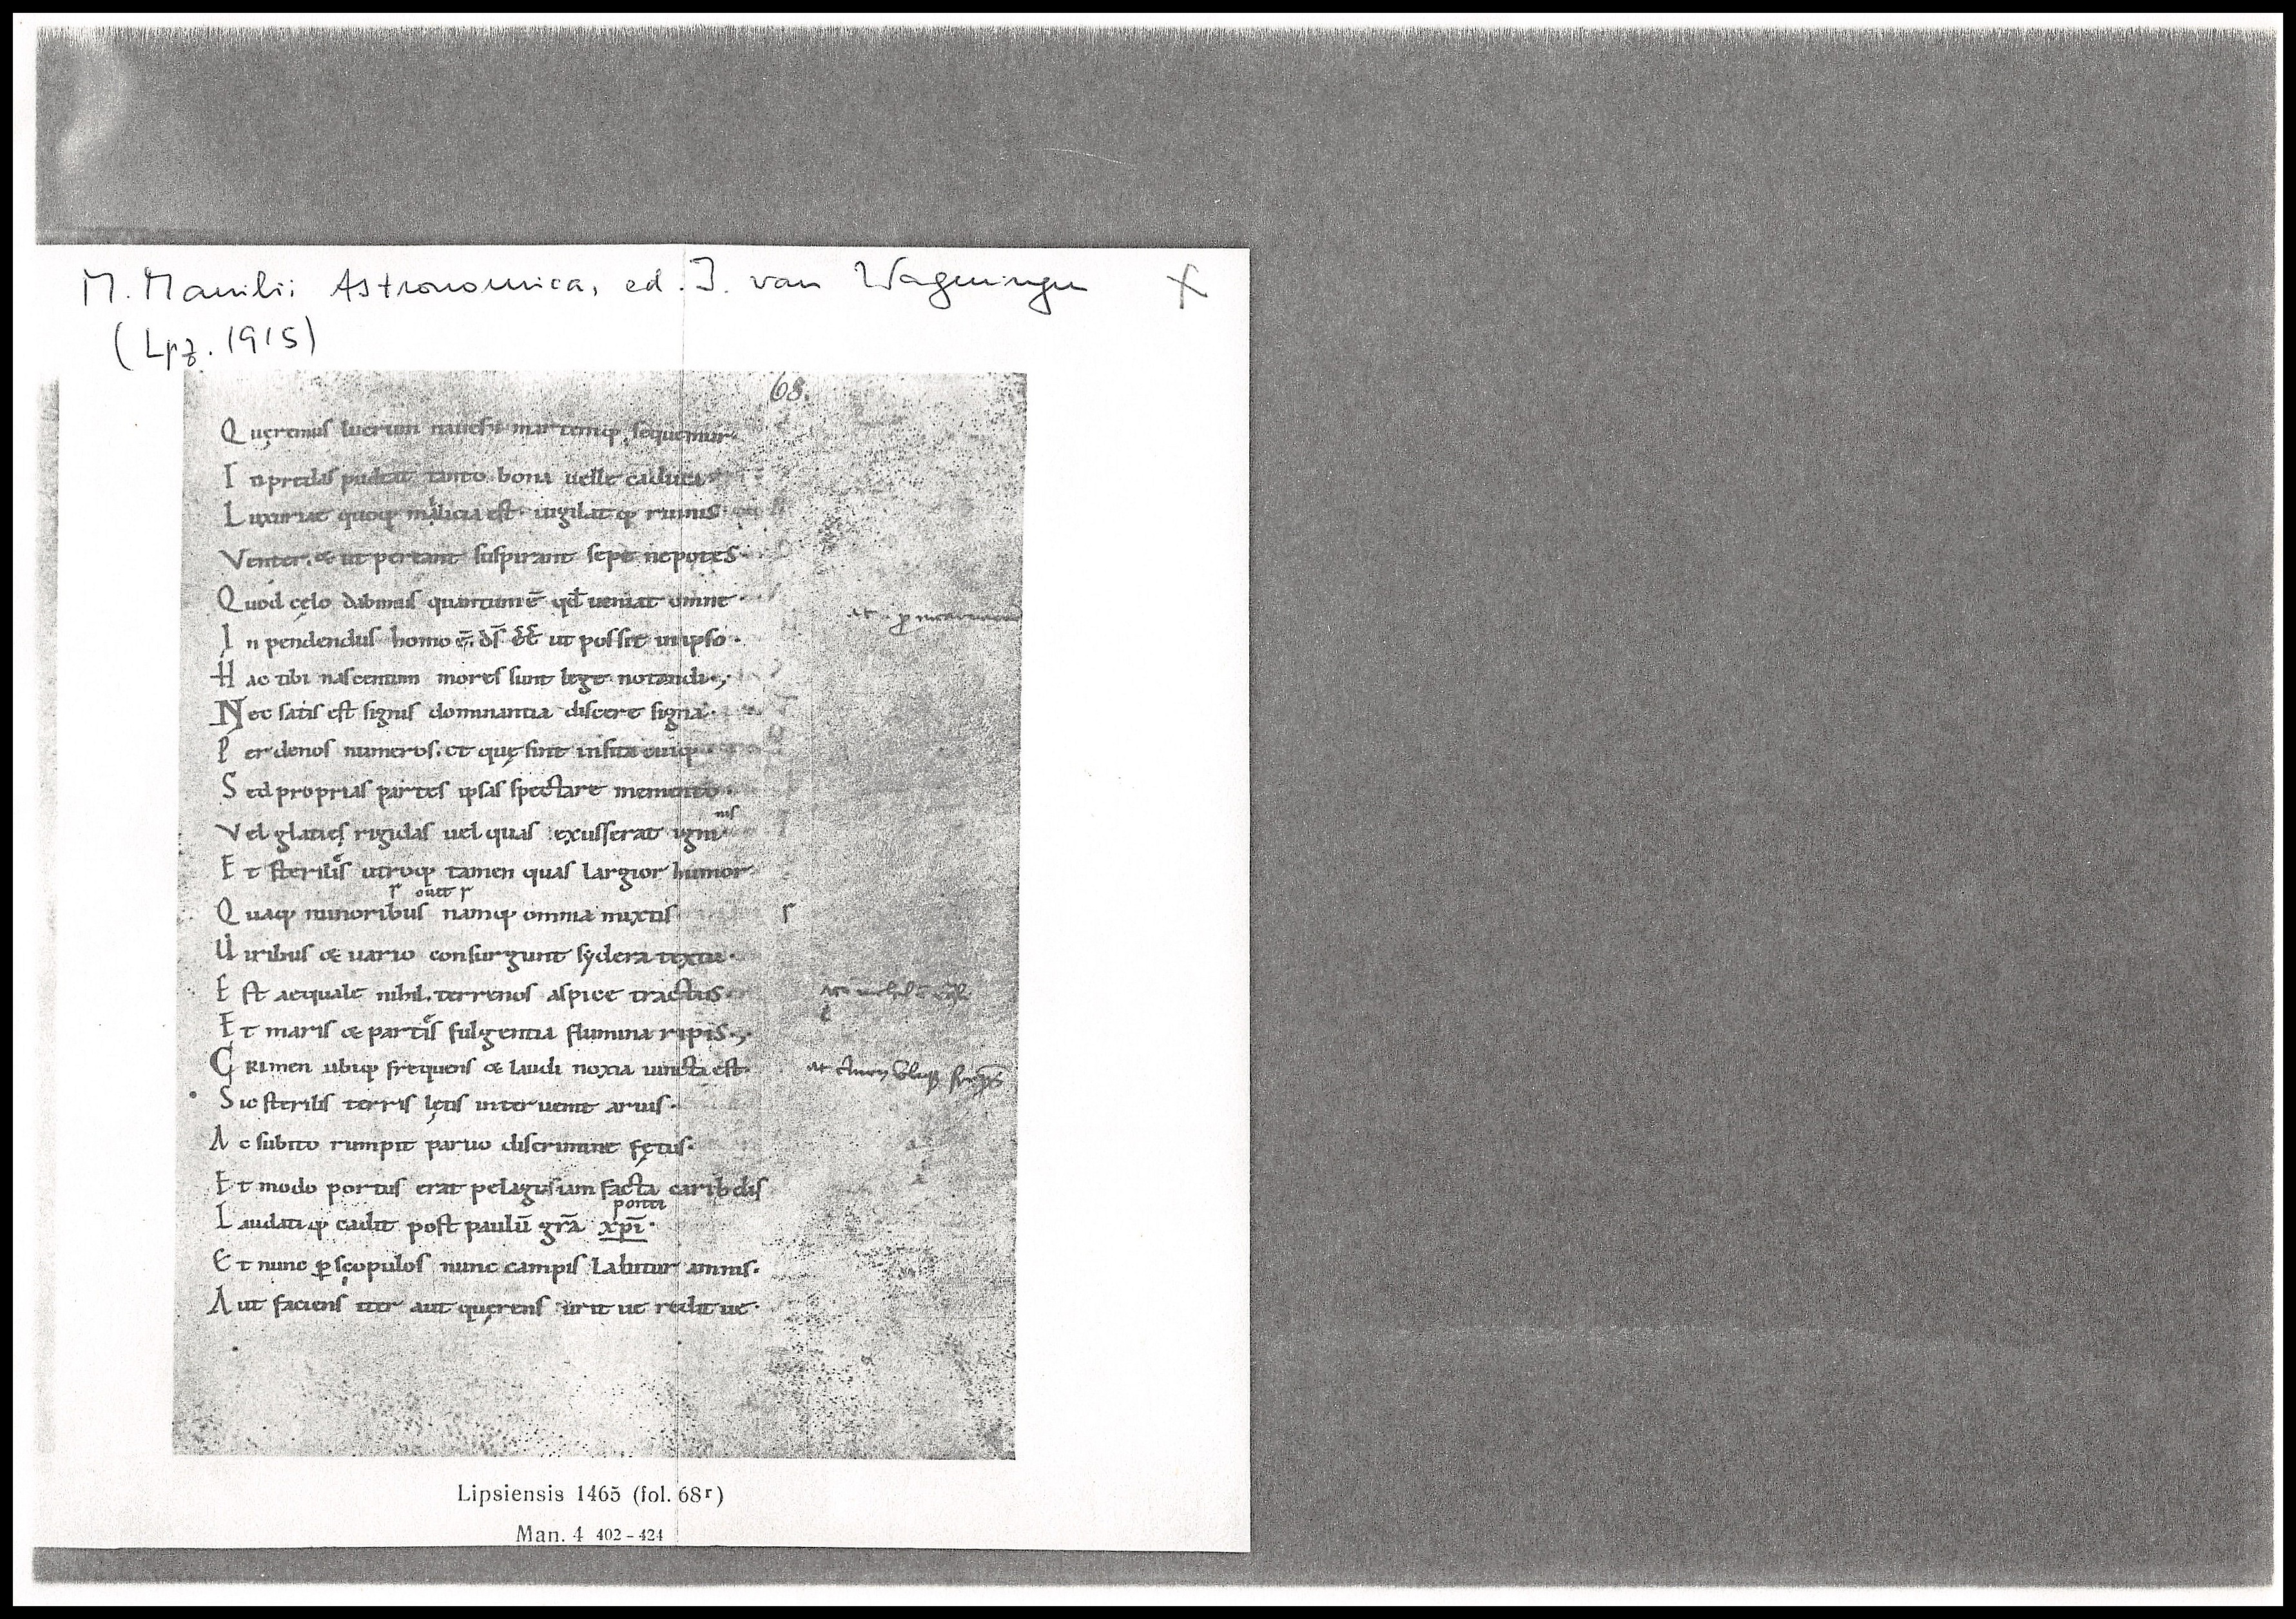 M. Manilii Astronomica, ed. J. van Wageningen X
(Lpz. 1915)
68.
Quęremus lucrum nauesq; martemq; sequemur.
In predas pudeat tanto bona uelle caduca
Luxuriae quoq; malicia est. uigilatq; ruinis
Venter. & ut pereant suspirant sepe nepotes.
Quod cęlo dabimus quantum ē qd̄ ueniat omne.
In pendendus homo ē. ds̄ ut possit in ipso.
Hac tibi nascentum mores sunt lege notandi.,
Nec satis est signis dominantia discere signa.
Per denos numeros. et quę sint insita cuiq;
Sed proprias partes ipsas spectare memento.
nis
Vel glacięs rigidas uel quas exusserat igni
Et sterilis utroq; tamen quas largior humor
Quaq; minoribus namq; omnia mixtis r
Uiribus & uario consurgunt sydera textu.
Est aequale nihil. terrenos aspice tractus
Et maris & partis fulgentia flumina ripis.,
CRimen ubiq; frequens & laudi noxia iuncta est. at crimen ubiq;
Sic sterilis terris lętis interuenit aruis.
Ac subito rumpit paruo discrimine fętus.
Et modo portus erat pelagus iam facta caribdis
ponti
Laudatiq; cadit post paulū grā xpī.
Et nunc ꝑ scopulos nunc campis labitur amnis.
Aut faciens iter aut quęrens urit ue redit ue.
Lipsiensis 1465 (fol. 68r)
Man. 4 402-424